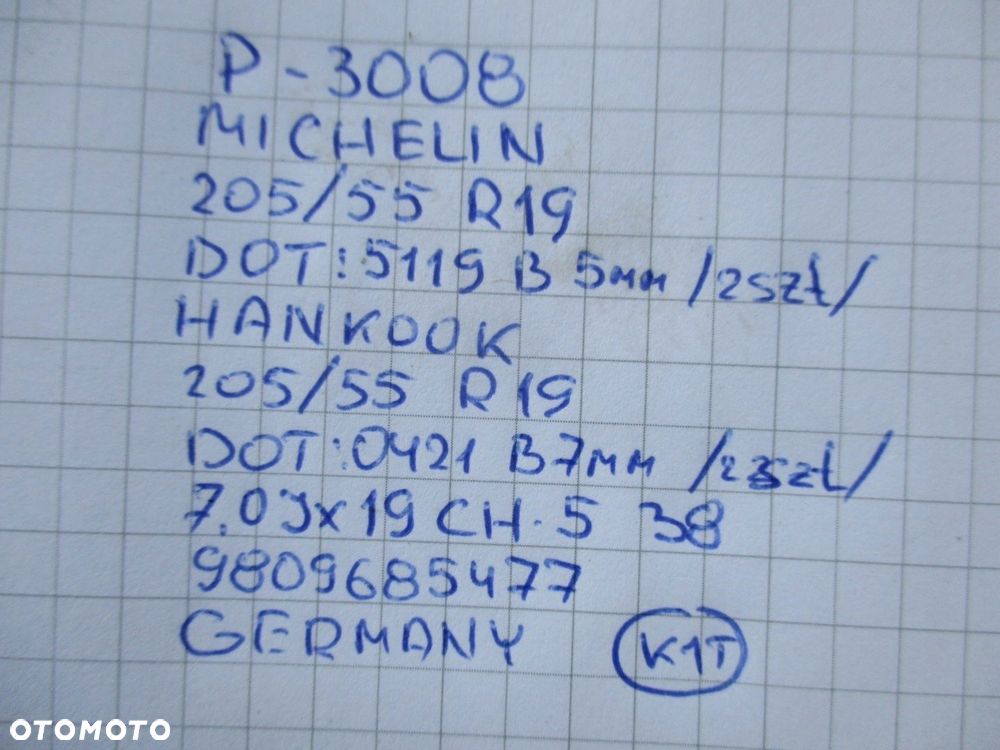 P-3008
MICHELIN
205/55 R19
DOT:5119 B 5mm /2szt/
HANKOOK
205/55 R19
DOT:0421 B7mm /2szt/
7.0Jx19 CH.5 38
9809685477
GERMANY K1T
OTOMOTO